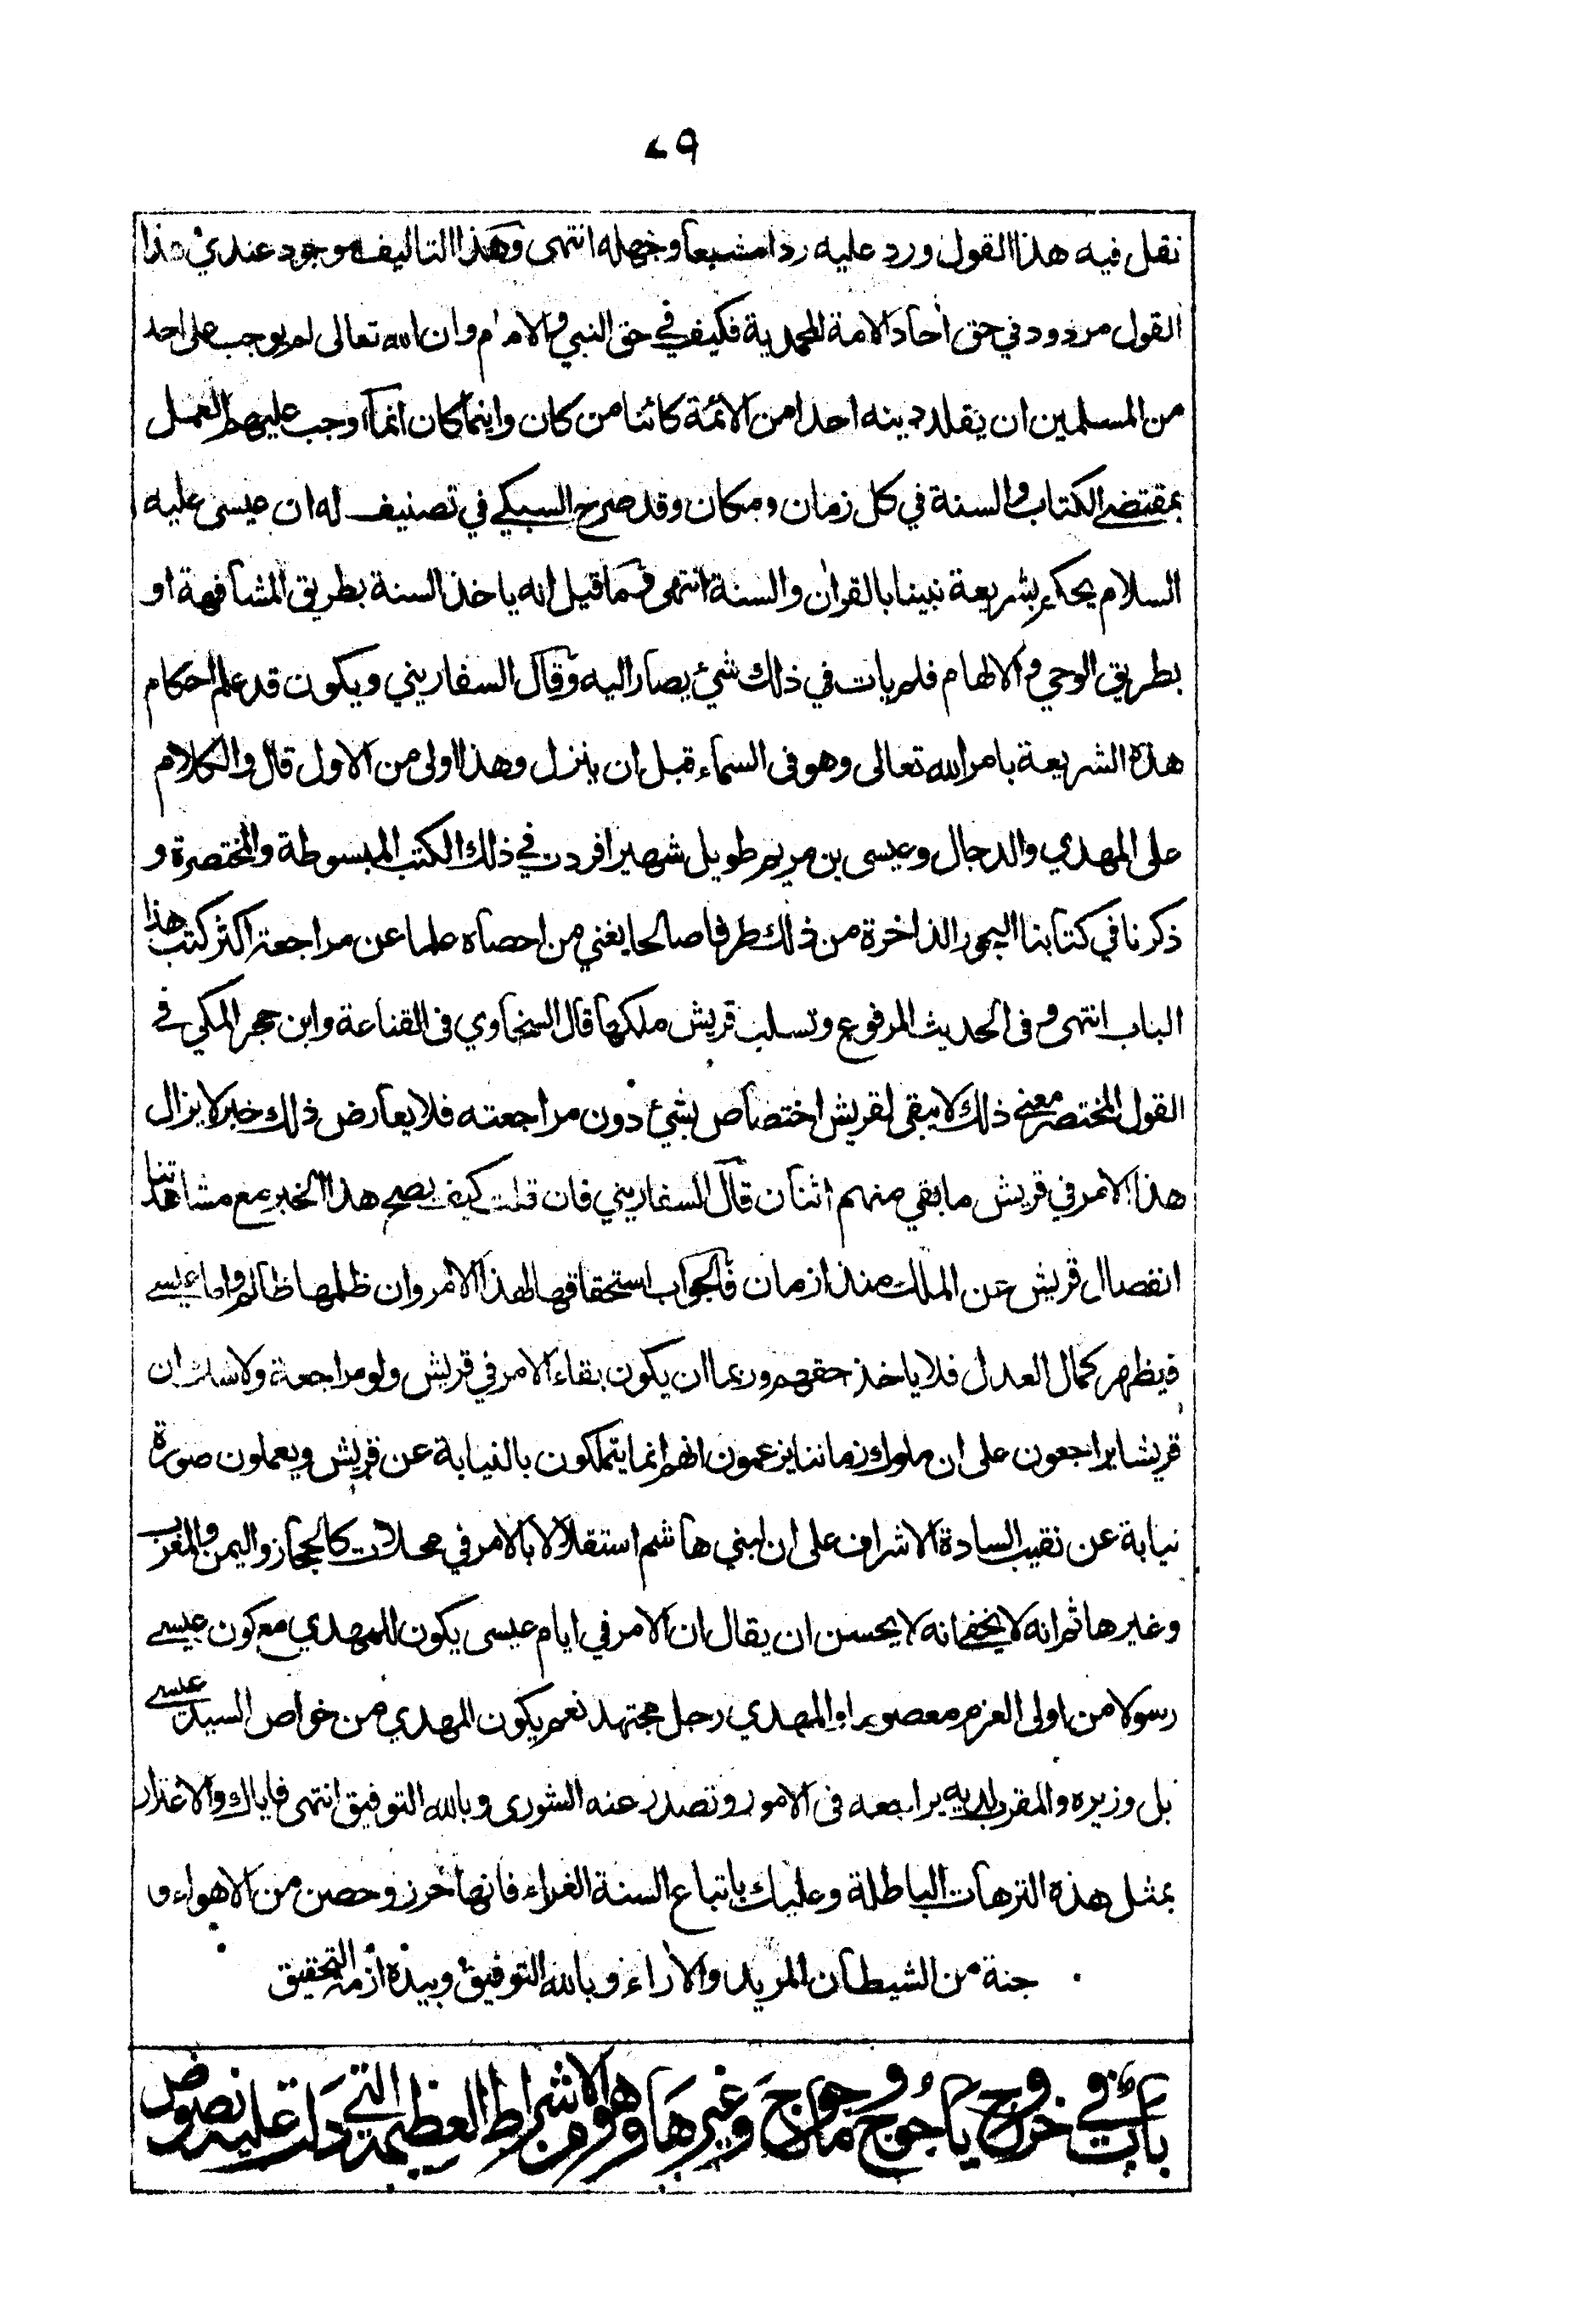 ٤٩
نقل فيه هذا القول ورد عليه ردا مشبعا وجهله انتهى وهذا التاليف موجود عندي هذا
القول مردود في حق احاد الامة المحمدية فكيف في حق النبي والامام وان الله تعالى لم يوجب على احد
من المسلمين ان يقلد دينه احدا من الائمة كائنا من كان واينما كان انما اوجب عليهم العمل
بمقتضى الكتاب والسنة في كل زمان ومكان وقد صرح السبكي في تصنيف له ان عيسى عليه
السلام يحكم بشريعة نبينا بالقران والسنة انتهى فما قيل انه ياخذ السنة بطريق المشافهة او
بطريق الوحي والالهام فلم يات في ذلك شيء يصار اليه وقال السفاريني ويكون قد علم احكام
هذه الشريعة بامر الله تعالى وهو في السماء قبل ان ينزل وهذا اولى من الاول قال والكلام
على المهدي والدجال وعيسى بن مريم طويل شهير افردت في ذلك الكتب المبسوطة والمختصرة و
ذكرنا في كتابنا البحور الذاخرة من ذلك طرفا صالحا يغني من احصاه علما عن مراجعة اكثر كتب هذا
الباب انتهى وفى الحديث المرفوع وتسلب قريش ملكها قال السخاوي فى القناعة وابن حجر المكي في
القول المختصر معنى ذلك لا يبقى لقريش اختصاص بشيء دون مراجعته فلا يعارض ذلك خبر لا يزال
هذا الامر في قريش ما بقي منهم اثنان قال السفاريني فان قلت كيف يصح هذا الخبر مع مشاهدتنا
انفصال قريش عن الملك منذ ازمان فالجواب استحقاقها لهذا الامر وان ظلمها ظالم واما عيسى
فيظهر كمال العدل فلا ياخذ حقهم وربما ان يكون بقاء الامر في قريش ولو مراجعة ولا شك ان
قريشا يراجعون على ان ملوك زماننا يزعمون انهم انما يتملكون بالنيابة عن قريش ويعملون صورة
نيابة عن نقيب السادة الاشراف على ان لبني هاشم استقلالا بالامر في محلات كالحجاز واليمن والمغرب
وغيرها ثم انه لا يخفى انه لا يحسن ان يقال ان الامر في ايام عيسى يكون للمهدي مع كون عيسى
رسولا من اولى العزم معصوما والمهدي رجل مجتهد نعم يكون المهدي من خواص السيد عيسى
بل وزيره والمقرب لديه يراجعه فى الامور وتصدر عنه الشورى وبالله التوفيق انتهى فاياك والاغترار
بمثل هذه الترهات الباطلة وعليك باتباع السنة الغراء فانها حرز وحصن من الاهواء و
جنة من الشيطان المريد والاراء وبالله التوفيق وبيده ازمة التحقيق
باب في خروج ياجوج وماجوج وغيرها وهو من الاشراط العظيمة التي دلت عليه نصوص